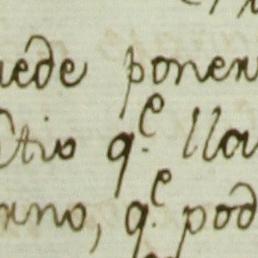 uede poner
tio q.e lla
rno, q.e pod